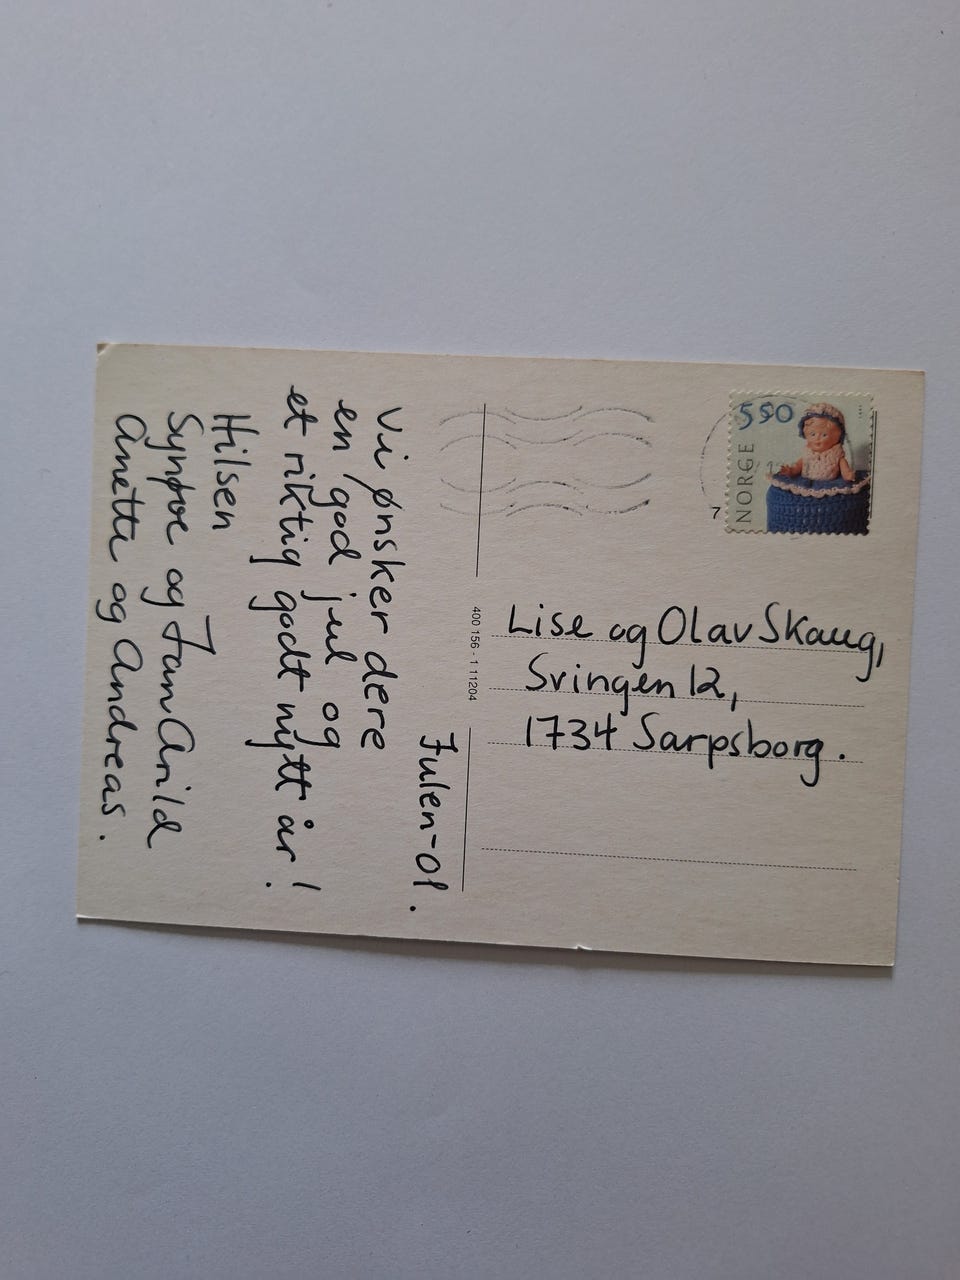 Julen-01.
Vi ønsker dere
en god jul og
et riktig godt nytt år!
Hilsen
Synøve og Jan Arild
Anette og Andreas.
400 156 - 1 11204
550
NORGE
7
Lise og Olav Skaug,
Svingen 12,
1734 Sarpsborg.